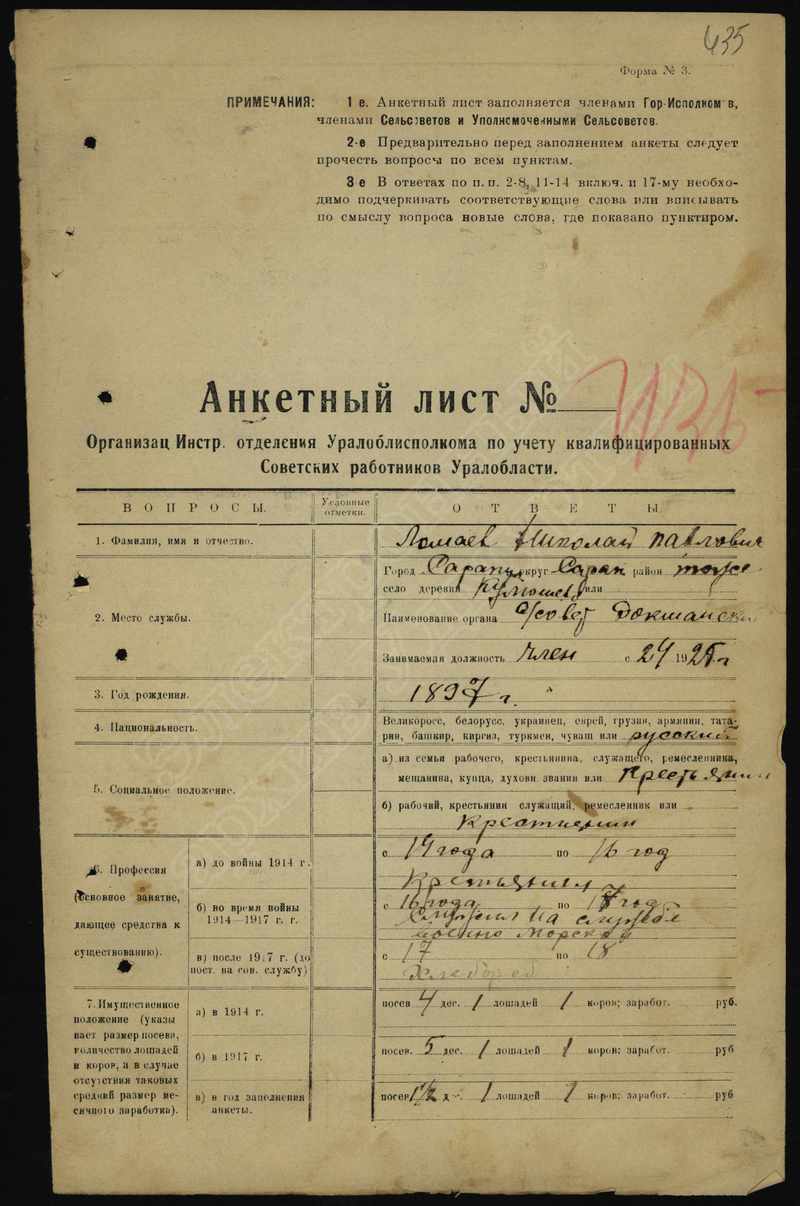 435
Форма № 3.
ПРИМЕЧАНИЯ: 1 е. Анкетный лист заполняется членами Гор-Исполком в,
членами Сельсоветов и Уполномоченными Сельсоветов.
2-е Предварительно перед заполнением анкеты следует
прочесть вопросы по всем пунктам.
3 е В ответах по п. п. 2-8, 11-14 включ. и 17-му необхо-
димо подчеркивать соответствующие слова или вписывать
по смыслу вопроса новые слова, где показано пунктиром.
Анкетный лист №
Организац Инстр. отделения Уралоблисполкома по учету квалифицированных
Советских работников Уралобласти.
ВОПРОСЫ. Условные отметки. ОТВЕТЫ
1. Фамилия, имя и отчество. Ломаев Николай Павлович
2. Место службы.
Город Сарапул округ Сарап район
село деревня или
Наименование органа с/совет Докшанск
Занимаемая должность Член с 24 1925 г
3. Год рождения. 1897 г.
4. Национальность. Великоросс, белорусс, украинец, еврей, грузин, армянин, тата-
рин, башкир, киргиз, туркмен, чуваш или русский
5. Социальное положение.
а) из семьи рабочего, крестьянина, служащего, ремесленника,
мещанина, купца, духовн звания или Крестьянин
б) рабочий, крестьянин служащий, ремесленник или
6. Профессия
(основное занятие,
дающее средства к
существованию).
а) до войны 1914 г. с 14 года по 16 год
б) во время войны
1914—1917 г. г.
с 16 года по
Служил на службе
военно Морской
в) после 1917 г. (до
пост. на сов. службу)
с 17 по 18
Хлебороб
7. Имущественное
положение (указы
вает размер посева,
количество лошадей
и коров, а в случае
отсутствия таковых
средний размер ме-
сячного заработка).
а) в 1914 г. посев 4 дес. 1 лошадей 1 коров; заработ. руб.
б) в 1917 г. посев. 5 дес. 1 лошадей 1 коров; заработ. руб
в) в год заполнения
анкеты.
посев д 1 лошадей 1 коров; заработ. руб